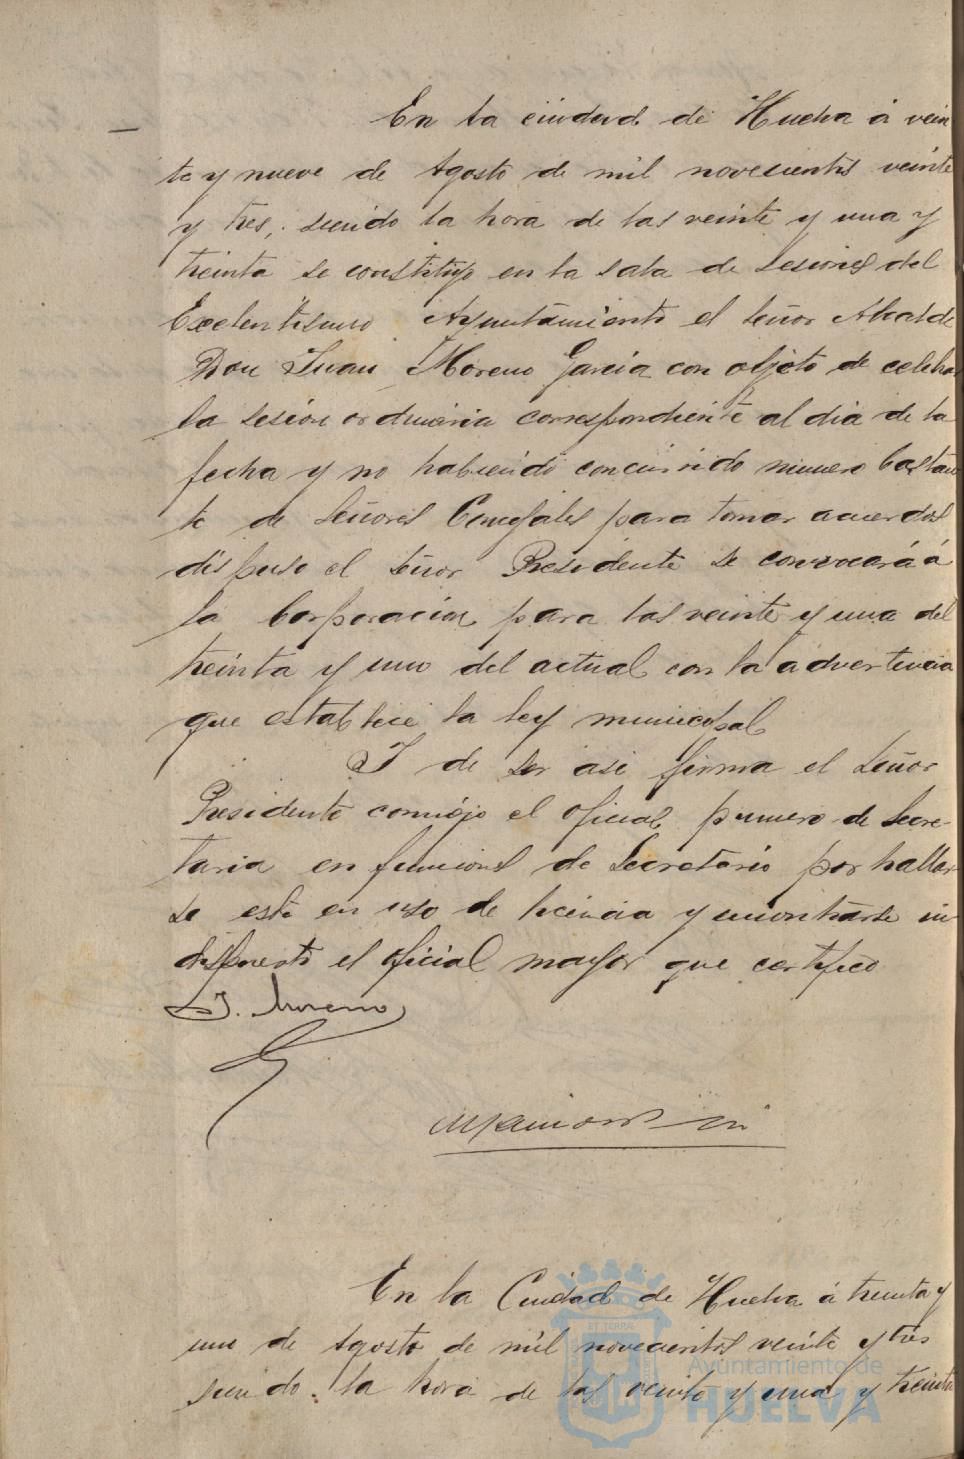 En la ciudad de Huelva á vein
te y nueve de Agosto de mil novecientos veinte
y tres, siendo la hora de las veinte y una y
treinta se constituyó en la sala de sesiones del
Excelentisimo Ayuntamiento el señor Alcalde
Don Juan Moreno Garcia con objeto de celebrar
la sesion ordinaria correspondiente al dia de la
fecha y no habiendo concurrido numero bastan
te de señores Concejales para tomar acuerdos
dispuso el señor Presidente se convocará á
la Corporacion para las veinte y una del
treinta y uno del actual con la advertencia
que establece la ley municipal
Y de ser asi firma el señor
Presidente conmigo el oficial primero de Secre-
taria en funciones de Secretario por hallar
se este en uso de licencia y encontrarse in
dispuesto el oficial mayor que certifico
J. Moreno
En la Ciudad de Huelva á treinta y
uno de Agosto de mil novecientos veinte y tres
siendo la hora de las veinte y una y treinta
ET TERRÆ
Ayuntamiento de
HUELVA